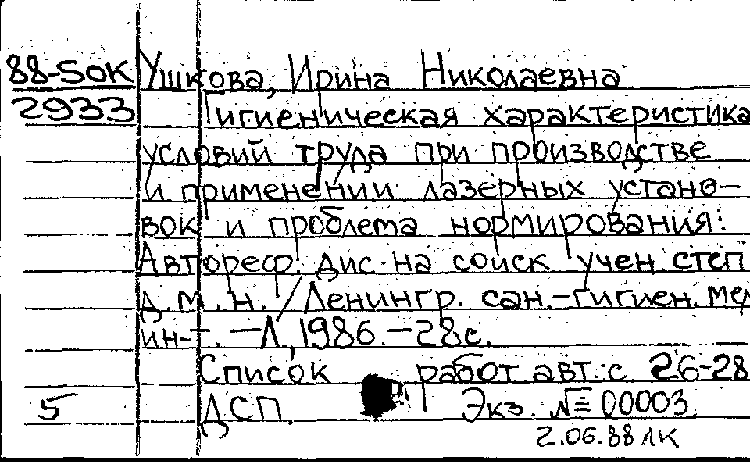 88-5ок Ушкова, Ирина Николаевна
2933 Гигиеническая характеристика
условий труда при производстве
и применении лазерных устано-
вок и проблема нормирования:
Автореф. дис. на соиск учен. степ
д.м.н. / Ленингр. сан.-гигиен. мед
ин-т. – Л., 1986. – 28с.
Список работ авт. с 26-28
5 ДСП. Экз. № 00003
2.06.88 ЛК